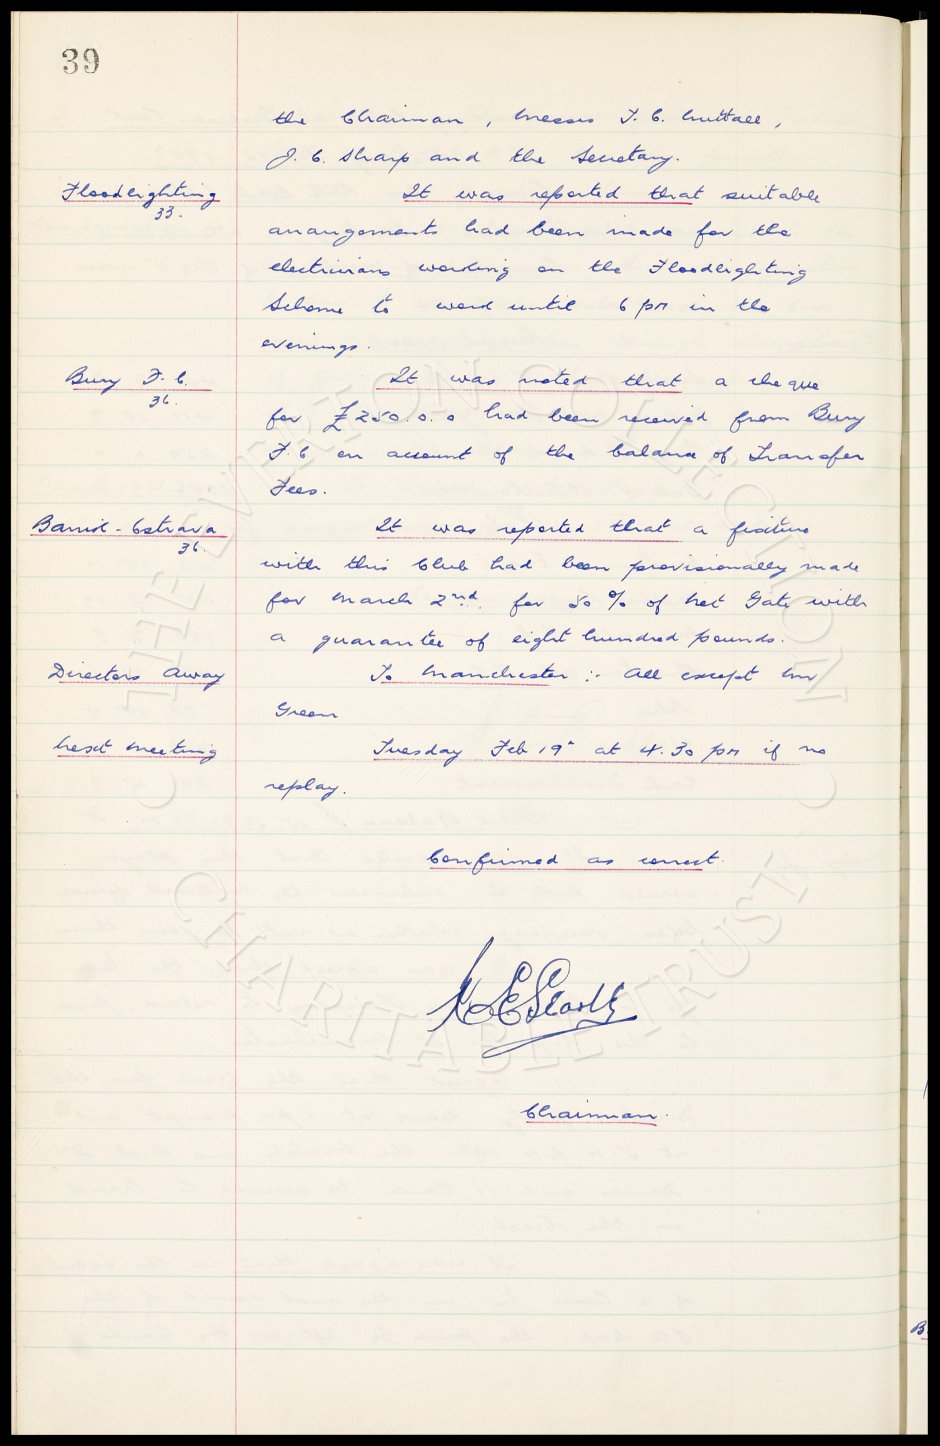 39
the Chairman, Messrs T. C. Nuttall,
J. C. Sharp and the Secretary.
Floodlighting
33.
It was reported that suitable
arrangements had been made for the
electricians working on the Floodlighting
Scheme to work until 6 pm in the
evenings.
Bury F. C.
36.
It was noted that a cheque
for £250.0.0 had been received from Bury
F.C on account of the balance of Transfer
Fees.
Banik - Ostrava
36.
It was reported that a fixture
with this Club had been provisionally made
for March 2nd. for 50% of Net Gate with
a guarantee of eight hundred pounds.
Directors Away
To Manchester :- All except Mr
Green
Next Meeting
Tuesday Feb 19th at 4.30 pm if no
replay.
Confirmed as correct.
Chairman.
THE EVERTON COLLECTION
CHARITABLE TRUST